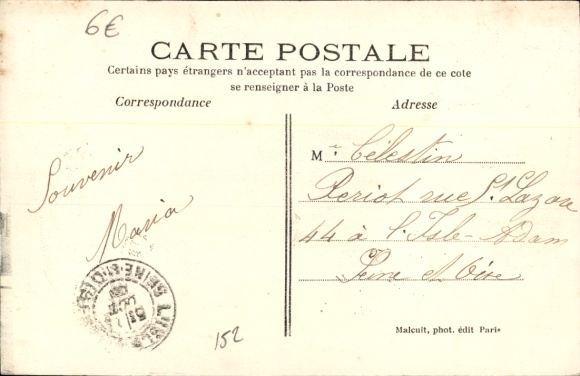 6€
CARTE POSTALE
Certains pays étrangers n'acceptant pas la correspondance de ce cote
se renseigner à la Poste
Correspondance
Adresse
Souvenir
Maria
Me Célestin
Periot rue St Lazare
44 à l'Isle-Adam
Seine et Oise
SEINE-ET-OISE
152
Malcuit, phot. édit Paris